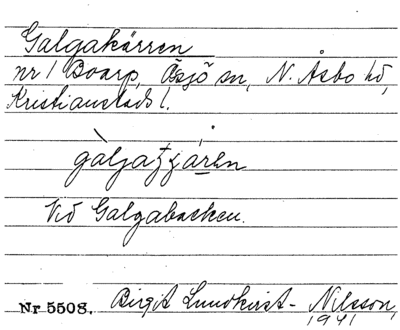 Galgakärren
nr 1 Boarp, Össjö sn, N. Åsbo hd,
Kristianstads l.
Vid Galgabacken.
Nr 5508. Birgit Lundkvist-Nilsson,
1941